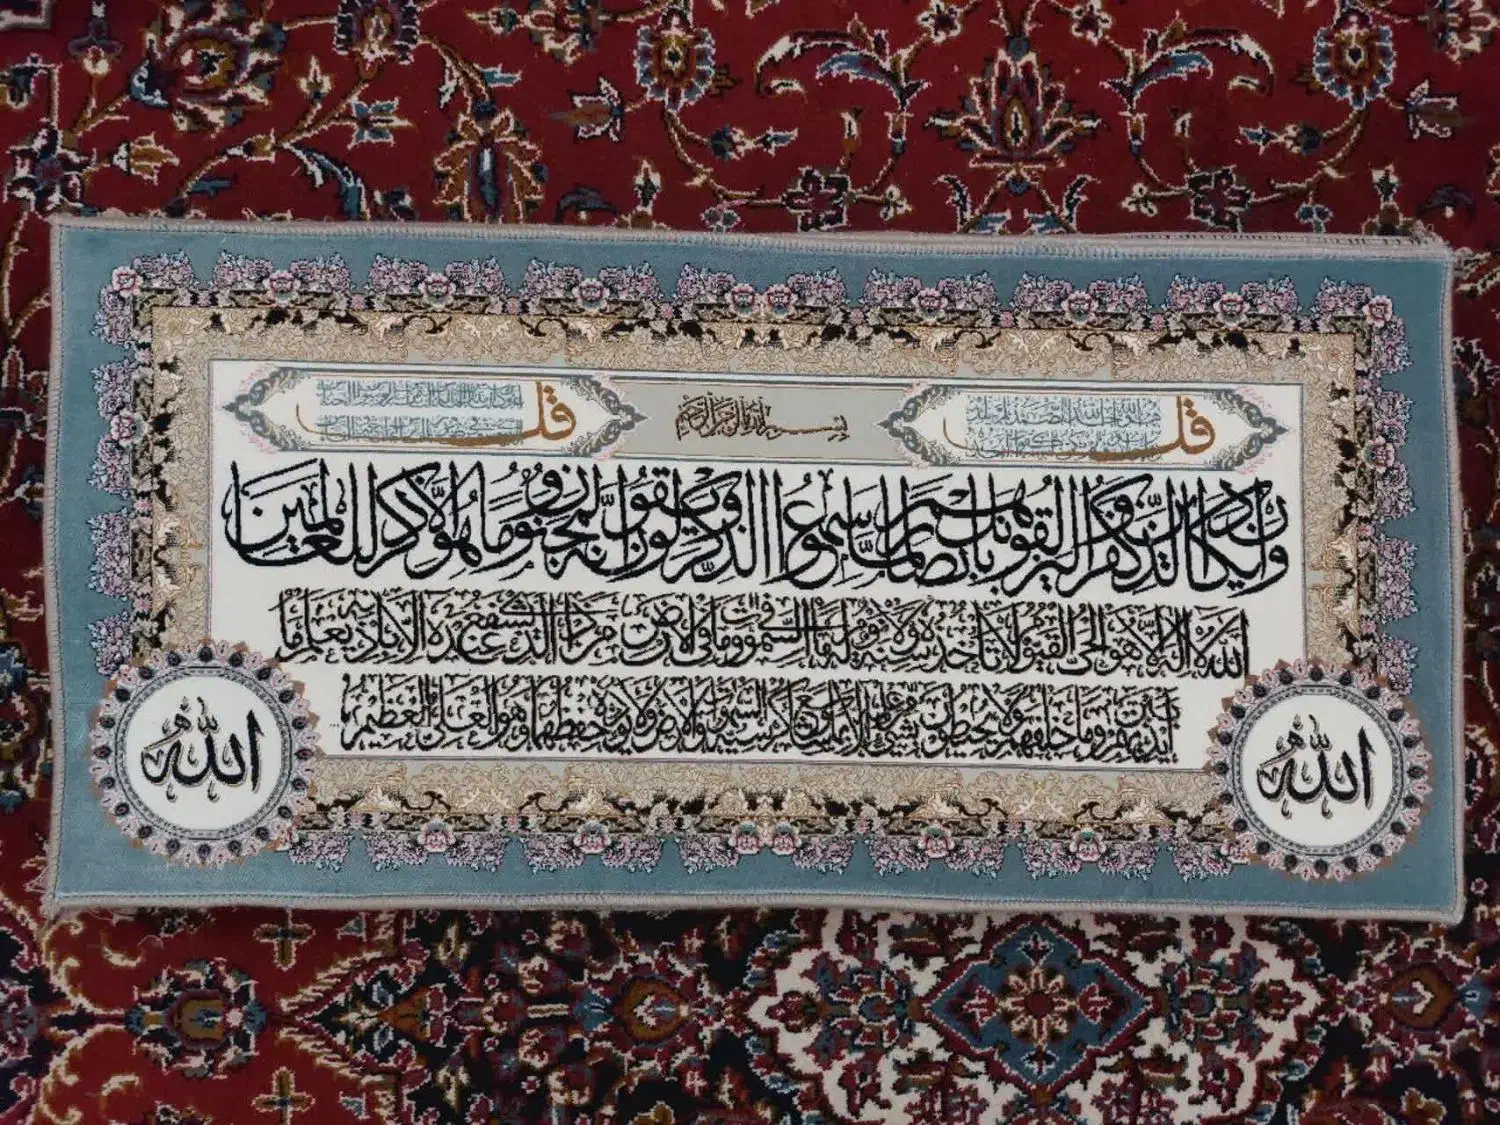 قل هو الله احد الله الصمد لم يلد
بسم الله الرحمن الرحيم
قل
وإن يكاد الذين كفروا ليزلقونك بأبصارهم لما سمعوا الذكر ويقولون إنه لمجنون وما هو إلا ذكر للعالمين
الله لا إله إلا هو الحي القيوم لا تأخذه سنة ولا نوم له ما في السموات وما في الأرض من ذا الذي يشفع عنده إلا بإذنه يعلم ما بين
أيديهم وما خلفهم ولا يحيطون بشيء من علمه إلا بما شاء وسع كرسيه السموات والأرض ولا يؤده حفظهما وهو العلي العظيم
الله
الله